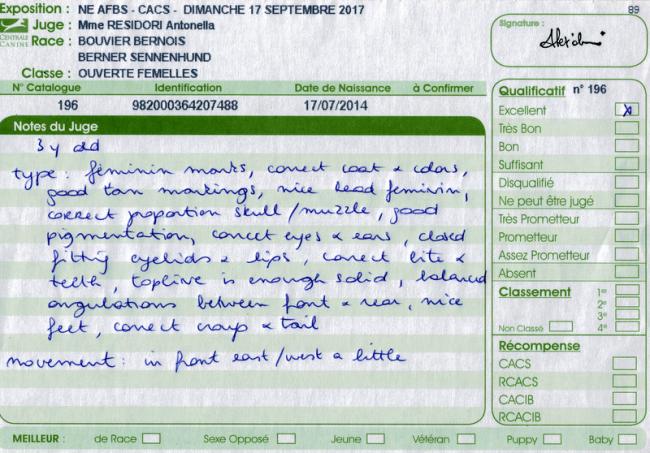 Exposition : NE AFBS - CACS - DIMANCHE 17 SEPTEMBRE 2017
89
CENTRALE CANINE
Juge : Mme RESIDORI Antonella
Race : BOUVIER BERNOIS
BERNER SENNENHUND
Classe : OUVERTE FEMELLES
Signature :
N° Catalogue Identification Date de Naissance à Confirmer
196 982000364207488 17/07/2014
Notes du Juge
3 y old
type : feminin marks, correct coat & colors,
good tan markings, nice head feminin,
correct proportion skull/muzzle, good
pigmentation, correct eyes & ears, closed
fitting eyelids & lips, correct bite &
teeth, topline is enough solid, balanced
angulations between front & rear, nice
feet, correct croup & tail
movement : in front east/west a little
Qualificatif n° 196
Excellent X
Très Bon
Bon
Suffisant
Disqualifié
Ne peut être jugé
Très Prometteur
Prometteur
Assez Prometteur
Absent
Classement 1er
2e
3e
Non Classé 4e
Récompense
CACS
RCACS
CACIB
RCACIB
MEILLEUR : de Race Sexe Opposé Jeune Vétéran Puppy Baby